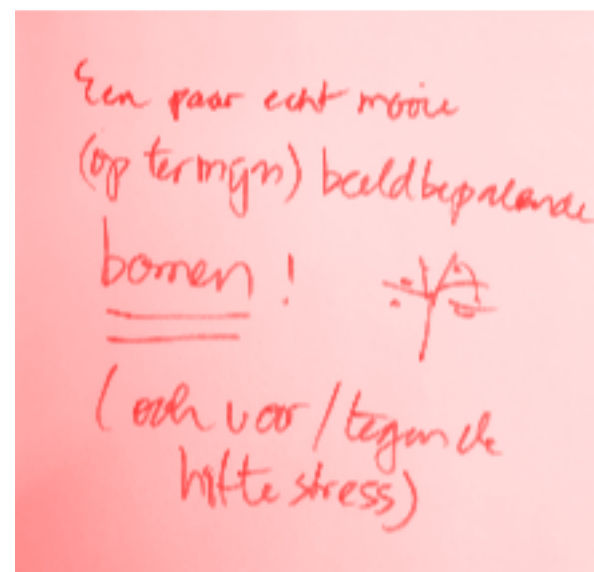 Een paar echt mooie
(op termijn) beeldbepalende
bomen!
(ook voor/tegen de
hittestress)